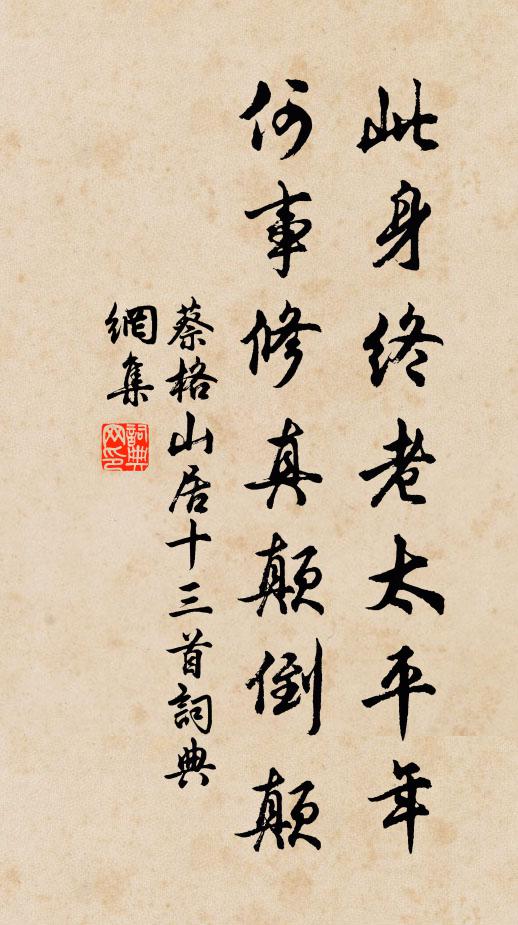 此身終老太平年
何事修真顛倒顛
蔡格山居十三首詞典
網集
詞典網印